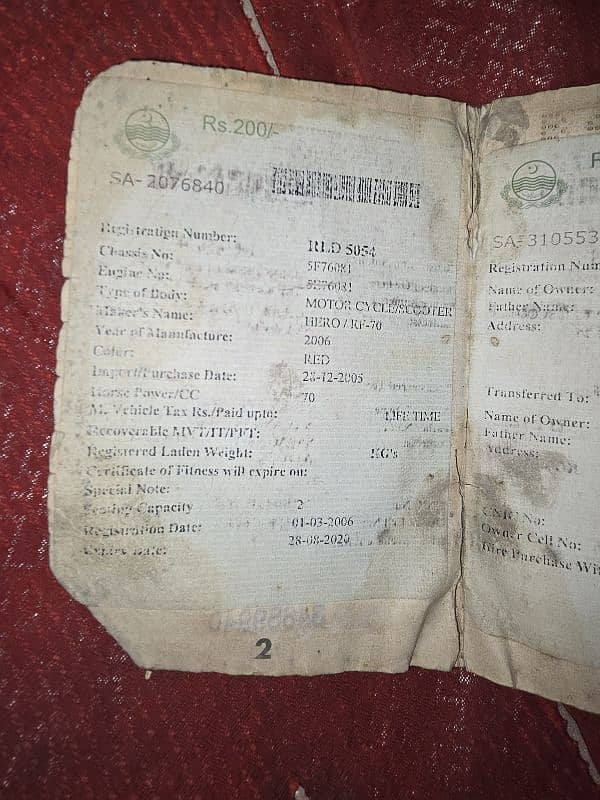 Rs.200/-
SA-2076840
Registration Number: RLD 5054
Chassis No: 5F76081
Engine No: 5E76081
Type of Body: MOTOR CYCLE/SCOOTER
Maker's Name: HERO / RF-70
Year of Manufacture: 2006
Color: RED
Import/Purchase Date: 28-12-2005
Horse Power/CC 70
M. Vehicle Tax Rs./Paid upto: LIFE TIME
Recoverable MVT/IT/PFT:
Registered Laden Weight: KG's
Certificate of Fitness will expire on:
Special Note:
Seating Capacity 2
Registration Date: 01-03-2006
Expiry Date: 28-08-2020
2
SA-310553
Registration Num
Name of Owner:
Father Name:
Address:
Transferred To:
Name of Owner:
Father Name:
Address:
CNIC No:
Owner Cell No:
Hire Purchase Wi